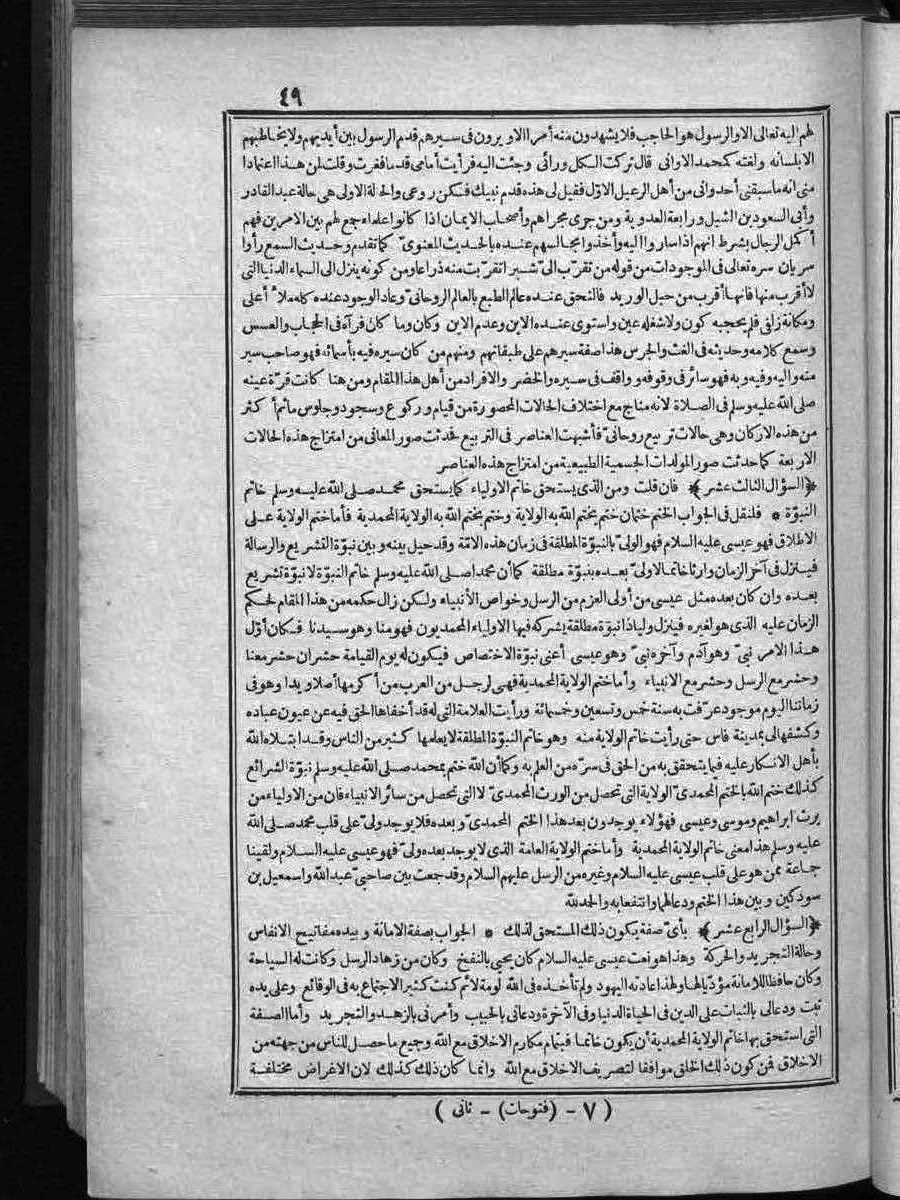 ٤٩
لهم اليه تعالى الا والرسول هو الحاجب فلا يشهدون منه أمرا الا ويرون فى سيرهم قدم الرسول بين أيديهم ولا يخاطبهم
الا بلسانه ولغته كمحمد الاوانى قال تركت الكل ورائى وجئت اليه فرأيت أمامى قدما فغرت وقلت لمن هذا اعتمادا
منى انه ما سبقنى أحد وانى من أهل الرعيل الاوّل فقيل لى هذه قدم نبيك فسكن روعى والحالة الاولى هى حالة عبد القادر
وأبى السعود بن الشبل ورابعة العدوية ومن جرى مجراهم وأصحاب الايمان اذا كانوا علماء جمع لهم بين الامرين فهم
أكمل الرجال بشرط انهم اذا ساروا اليه وأخذوا مجالسهم عنده بالحديث المعنوىّ كما تقدم وحديث السمع رأوا
سريان سره تعالى فى الموجودات من قوله من تقرّب الىّ شبرا تقرّبت منه ذراعا ومن كونه ينزل الى السماء الدنيا التى
لا أقرب منها فانها أقرب من حبل الوريد فالتحق عنده عالم الطبع بالعالم الروحانىّ وعاد الوجود عنده كله ملأ أعلى
ومكانة زلفى فلم يحجبه كون ولا شغله عين واستوى عنده الاين وعدم الاين وكان وما كان فرآه فى الحجاب والعسس
وسمع كلامه وحديثه فى الغث والجرس هذا صفة سيرهم على طبقاتهم ومنهم من كان سيره فيه بأسمائه فهو صاحب سير
منه واليه وفيه وبه فهو سائر فى وقوفه وواقف فى سيره والخضر والافراد من أهل هذا المقام ومن هنا كانت قرّة عينه
صلى الله عليه وسلم فى الصلاة لانه مناج مع اختلاف الحالات المحصورة من قيام وركوع وسجود وجلوس ما ثم أكثر
من هذه الاركان وهى حالات تربيع روحانىّ فأشبهت العناصر فى التربيع فحدثت صور المعانى من امتزاج هذه الحالات
الاربعة كما حدثت صور المولدات الجسمية الطبيعية من امتزاج هذه العناصر
﴿السؤال الثالث عشر﴾ فان قلت ومن الذى يستحق خاتم الاولياء كما يستحق محمد صلى الله عليه وسلم خاتم
النبوّة * فلنقل فى الجواب الختم ختمان ختم يختم الله به الولاية وختم يختم الله به الولاية المحمدية فأما ختم الولاية على
الاطلاق فهو عيسى عليه السلام فهو الولىّ بالنبوّة المطلقة فى زمان هذه الامّة وقد حيل بينه وبين نبوّة التشريع والرسالة
فينزل فى آخر الزمان وارثا خاتما لا ولىّ بعده بنبوّة مطلقة كما أن محمدا صلى الله عليه وسلم خاتم النبوّة لا نبوّة تشريع
بعده وان كان بعده مثل عيسى من أولى العزم من الرسل وخواص الأنبياء ولكن زال حكمه من هذا المقام لحكم
الزمان عليه الذى هو لغيره فينزل وليا ذا نبوّة مطلقة يشركه فيها الاولياء المحمديون فهو منا وهو سيدنا فكان أوّل
هذا الامر نبىّ وهو آدم وآخره نبىّ وهو عيسى أعنى نبوّة الاختصاص فيكون له يوم القيامة حشران حشر معنا
وحشر مع الرسل وحشر مع الانبياء وأما ختم الولاية المحمدية فهى لرجل من العرب من أكرمها أصلا ويدا وهو فى
زماننا اليوم موجود عرّفت به سنة خمس وتسعين وخمسمائة ورأيت العلامة التى له قد أخفاها الحق فيه عن عيون عباده
وكشفها لى بمدينة فاس حتى رأيت خاتم الولاية منه وهو خاتم النبوّة المطلقة لا يعلمها كثير من الناس وقد ابتلاه الله
بأهل الانكار عليه فيما يتحقق به من الحق فى سرّه من العلم به وكما أن الله ختم بمحمد صلى الله عليه وسلم نبوّة الشرائع
كذلك ختم الله بالختم المحمدىّ الولاية التى تحصل من الورث المحمدىّ لا التى تحصل من سائر الانبياء فان من الاولياء من
يرث ابراهيم وموسى وعيسى فهؤلاء يوجدون بعد هذا الختم المحمدىّ وبعده فلا يوجد ولىّ على قلب محمد صلى الله
عليه وسلم هذا معنى خاتم الولاية المحمدية وأما ختم الولاية العامة الذى لا يوجد بعده ولىّ فهو عيسى عليه السلام ولقينا
جماعة ممن هو على قلب عيسى عليه السلام وغيره من الرسل عليهم السلام وقد جمعت بين صاحبىّ عبد الله واسمعيل بن
سودكين وبين هذا الختم ودعا لهما وانتفعا به والحمد لله
﴿السؤال الرابع عشر﴾ بأىّ صفة يكون ذلك المستحق لذلك * الجواب بصفة الامانة وبيده مفاتيح الانفاس
وحالة التجريد والحركة وهذا هو نعت عيسى عليه السلام كان يحيى بالنفخ وكان من زهاد الرسل وكانت له السياحة
وكان حافظا للامانة مؤدّيا لها ولهذا عادته اليهود ولم تأخذه فى الله لومة لائم كنت كثير الاجتماع به فى الوقائع وعلى يده
تبت ودعا لى بالثبات على الدين فى الحياة الدنيا وفى الآخرة ودعانى بالحبيب وأمرنى بالزهد والتجريد وأما الصفة
التى استحق بها خاتم الولاية المحمدية أن يكون خاتما فبتمام مكارم الاخلاق مع الله وجميع ما حصل للناس من جهته من
الاخلاق فمن كون ذلك الخلق موافقا لتصريف الاخلاق مع الله وانما كان ذلك كذلك لان الاغراض مختلفة
( ٧ - (فتوحات) - ثانى )